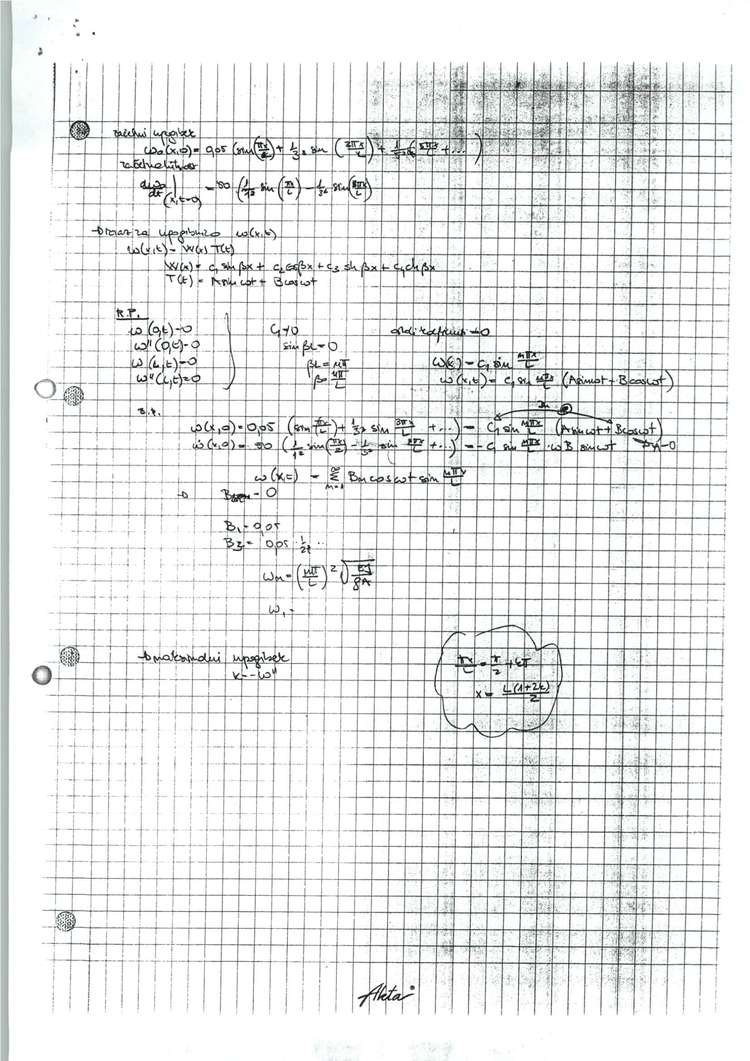 začetni upogibek
w₀(x,0) = 0,05 (sin(πx/L) + 1/3² sin (3πx/L) + 1/5² (5πx/L + ...)
začetna hitrost
dw₀/dt |(x,t=0) = 50 (1/1² sin(πx/L) - 1/3² sin(3πx/L)
za upogibnico w(x,t)
w(x,t) = W(x) T(t)
W(x) = C₁ sin βx + C₂ cos βx + C₃ sh βx + C₄ ch βx
T(t) = A sin ωt + B cos ωt
R.P.
w(0,t) = 0 C₁ ≠ 0
w''(0,t) = 0 sin βL = 0
w(L,t) = 0 βL = nπ W(x) = C₁ sin nπx/L
w''(L,t) = 0 β = nπ/L w(x,t) = C₁ sin nπx/L (A sin ωt + B cos ωt)
w(x,0) = 0,05 (sin(πx/L) + 1/3² sin 3πx/L + ...) = C₁ sin nπx/L (A sin ωt + B cos ωt)
ẇ(x,0) = 50 (1/1² sin(πx/L) - 1/3² sin 3πx/L + ...) = -C₁ sin nπx/L · ωB sin ωt A=0
w(x,t) = Σ Bn cos ωt sin nπx/L
= 0
B₁ = 0,05
B₃ = 0,05
ωn = (nπ/L)² √EJ/ρA
ω₁ =
maksimalni upogibek
K = -w''
πx/L = π/2 + kπ
x = L(1+2k)/2
Aleta